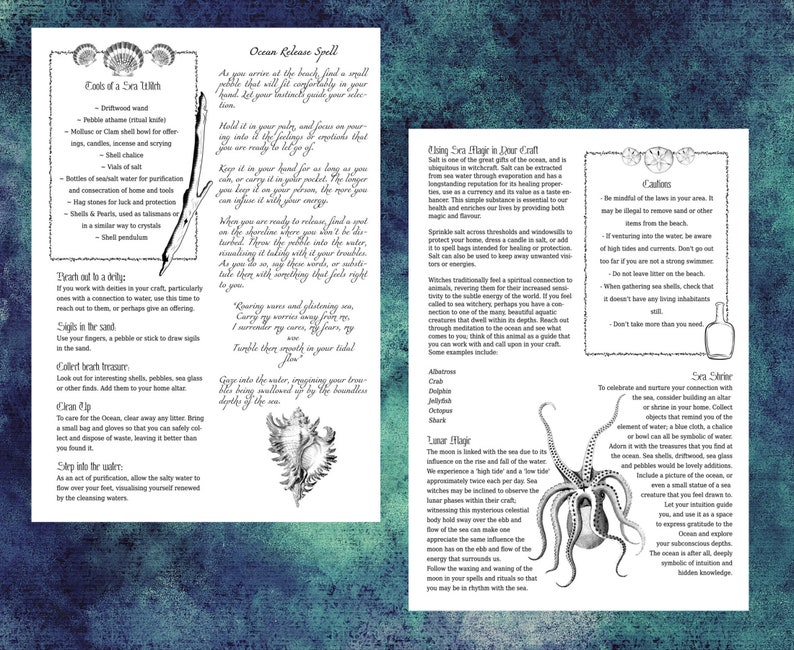 Tools of a Sea Witch
~ Driftwood wand
~ Pebble athame (ritual knife)
~ Mollusc or Clam shell bowl for offer-
ings, candles, incense and scrying
~ Shell chalice
~ Vials of salt
~ Bottles of sea/salt water for purification
and consecration of home and tools
~ Hag stones for luck and protection
~ Shells & Pearls, used as talismans or
in a similar way to crystals
~ Shell pendulum
Reach out to a deity:
If you work with deities in your craft, particularly
ones with a connection to water, use this time to
reach out to them, or perhaps give an offering.
Sigils in the sand:
Use your fingers, a pebble or stick to draw sigils
in the sand.
Collect beach treasure:
Look out for interesting shells, pebbles, sea glass
or other finds. Add them to your home altar.
Clean Up
To care for the Ocean, clear away any litter. Bring
a small bag and gloves so that you can safely col-
lect and dispose of waste, leaving it better than
you found it.
Step into the water:
As an act of purification, allow the salty water to
flow over your feet, visualising yourself renewed
by the cleansing waters.
Ocean Release Spell
As you arrive at the beach, find a small
pebble that will fit comfortably in your
hand. Let your instincts guide your selec-
tion.
Hold it in your palm, and focus on pour-
ing into it the feelings or emotions that
you are ready to let go of.
Keep it in your hand for as long as you
can, or carry it in your pocket. The longer
you keep it on your person, the more you
can infuse it with your energy.
When you are ready to release, find a spot
on the shoreline where you won't be dis-
turbed. Throw the pebble into the water,
visualising it taking with it your troubles.
As you do so, say these words, or substi-
tute them with something that feels right
to you.
"Roaring waves and glistening sea,
Carry my worries away from me,
I surrender my cares, my fears, my
woe
Tumble them smooth in your tidal
flow"
Gaze into the water, imagining your trou-
bles being swallowed up by the boundless
depths of the sea.
Using Sea Magic in Your Craft
Salt is one of the great gifts of the ocean, and is
ubiquitous in witchcraft. Salt can be extracted
from sea water through evaporation and has a
longstanding reputation for its healing proper-
ties, use as a currency and its value as a taste en-
hancer. This simple substance is essential to our
health and enriches our lives by providing both
magic and flavour.
Sprinkle salt across thresholds and windowsills to
protect your home, dress a candle in salt, or add
it to spell bags intended for healing or protection.
Salt can also be used to keep away unwanted visi-
tors or energies.
Witches traditionally feel a spiritual connection to
animals, revering them for their increased sensi-
tivity to the subtle energy of the world. If you feel
called to sea witchery, perhaps you have a con-
nection to one of the many, beautiful aquatic
creatures that dwell within its depths. Reach out
through meditation to the ocean and see what
comes to you; think of this animal as a guide that
you can work with and call upon in your craft.
Some examples include:
Albatross
Crab
Dolphin
Jellyfish
Octopus
Shark
Lunar Magic
The moon is linked with the sea due to its
influence on the rise and fall of the water.
We experience a 'high tide' and a 'low tide'
approximately twice each per day. Sea
witches may be inclined to observe the
lunar phases within their craft;
witnessing this mysterious celestial
body hold sway over the ebb and
flow of the sea can make one
appreciate the same influence the
moon has on the ebb and flow of the
energy that surrounds us.
Follow the waxing and waning of the
moon in your spells and rituals so that
you may be in rhythm with the sea.
Cautions
- Be mindful of the laws in your area. It
may be illegal to remove sand or other
items from the beach.
- If venturing into the water, be aware
of high tides and currents. Don't go out
too far if you are not a strong swimmer.
- Do not leave litter on the beach.
- When gathering sea shells, check that
it doesn't have any living inhabitants
still.
- Don't take more than you need.
Sea Shrine
To celebrate and nurture your connection with
the sea, consider building an altar
or shrine in your home. Collect
objects that remind you of the
element of water; a blue cloth, a chalice
or bowl can all be symbolic of water.
Adorn it with the treasures that you find at
the ocean. Sea shells, driftwood, sea glass
and pebbles would be lovely additions.
Include a picture of the ocean, or
even a small statue of a sea
creature that you feel drawn to.
Let your intuition guide
you, and use it as a space
to express gratitude to the
Ocean and explore
your subconscious depths.
The ocean is after all, deeply
symbolic of intuition and
hidden knowledge.